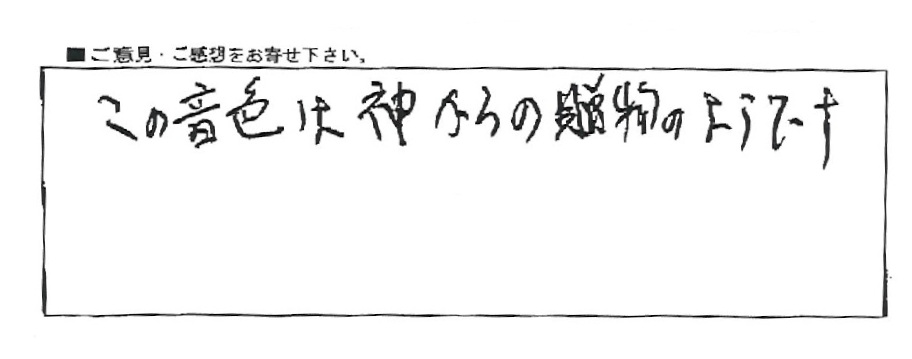 ■ご意見・ご感想をお寄せ下さい。
この音色は神からの贈物のようです